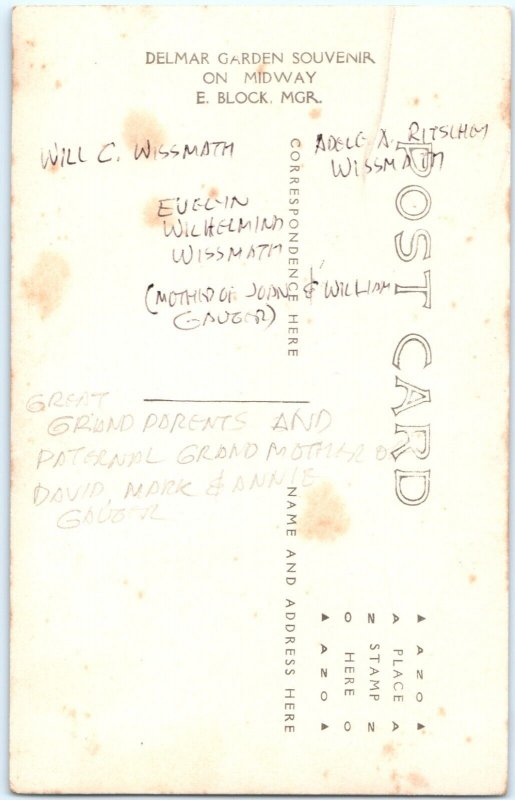 DELMAR GARDEN SOUVENIR
ON MIDWAY
E. BLOCK, MGR.
WILL C. WISSMATH
ADELE A. RITSCHY
WISSMATH
EVELYN
WILHELMINA
WISSMATH
(MOTHER OF JOAN & WILLIAM
GAUGER)
GREAT
GRAND PARENTS AND
PATERNAL GRAND MOTHER OF
DAVID, MARK & ANNIE
GAUGER
CORRESPONDENCE HERE
NAME AND ADDRESS HERE
POST CARD
▲ ANO ▲
A PLACE A
N STAMP N
O HERE O
▲ ANO ▲